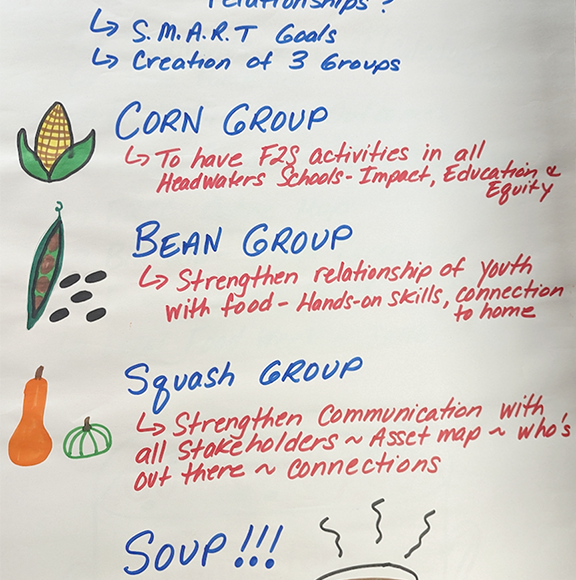 relationships?
↳ S.M.A.R.T Goals
↳ Creation of 3 Groups
CORN GROUP
↳ To have F2S activities in all
Headwaters Schools - Impact, Education, &
Equity
BEAN GROUP
↳ Strengthen relationship of youth
with food - Hands-on skills, connection
to home
Squash GROUP
↳ Strengthen Communication with
all Stakeholders ~ Asset map ~ who's
out there ~ connections
SOUP!!!